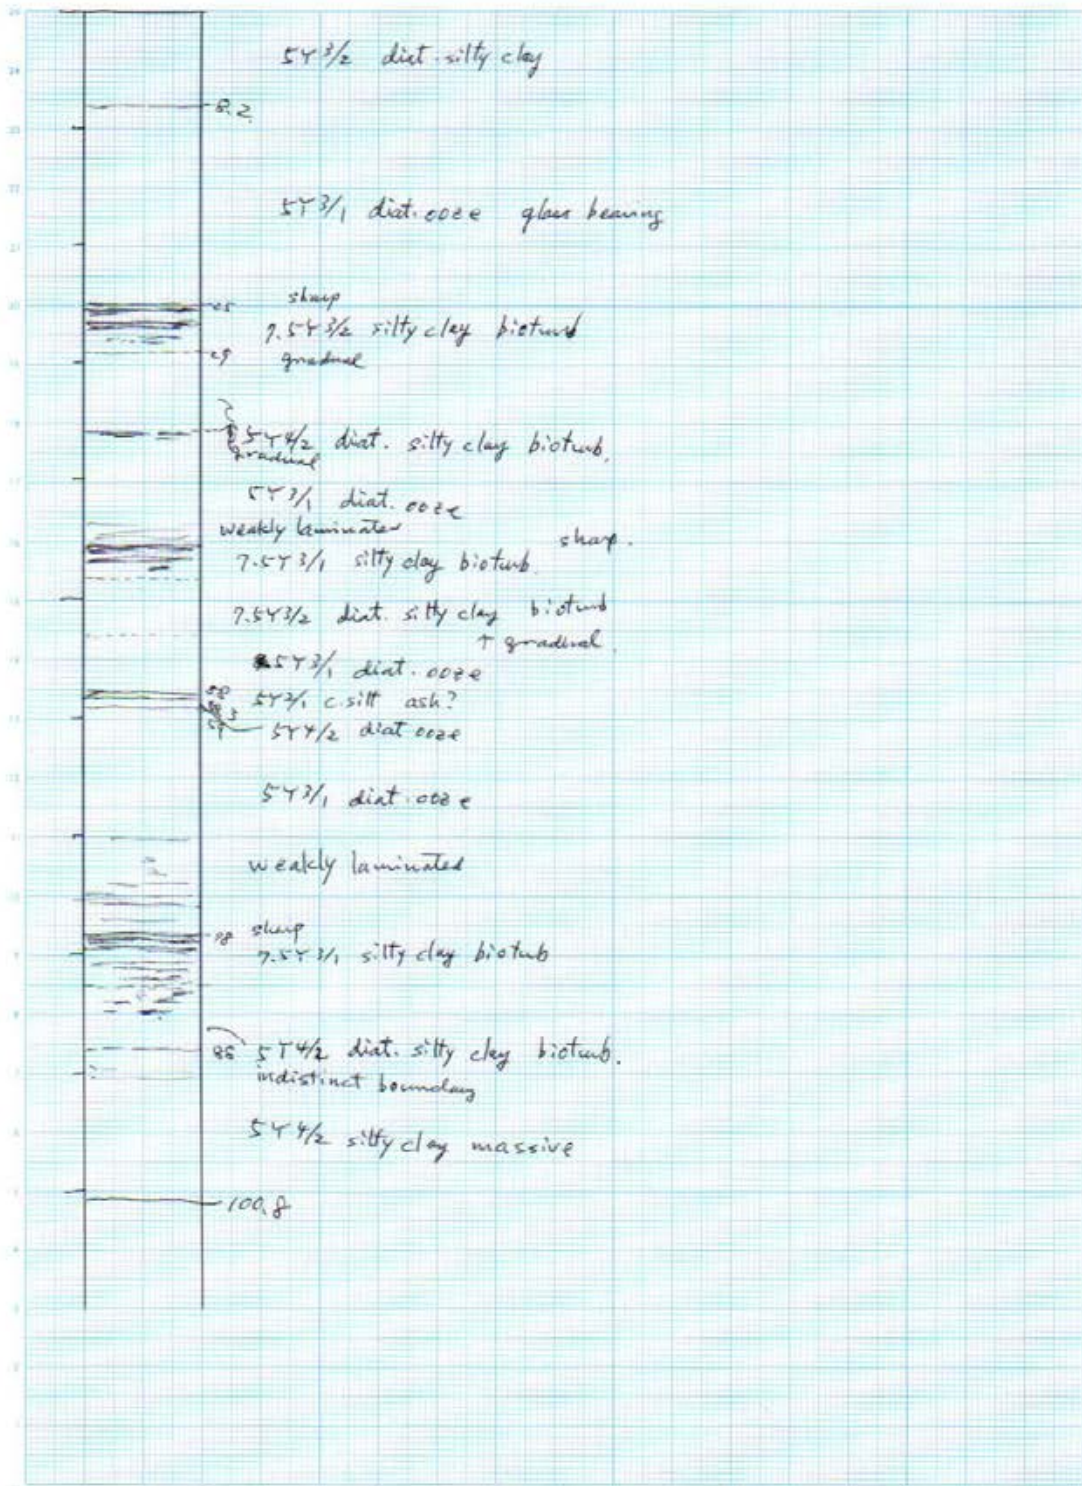 5Y 3/2 diat. silty clay
8.2
5Y 3/1 diat. ooze glass bearing
25 sharp
7.5Y 3/2 silty clay bioturb
29 gradual
5Y 4/2 diat. silty clay bioturb.
gradual
5Y 3/1 diat. ooze
weakly laminated
sharp.
7.5Y 3/1 silty clay bioturb.
7.5Y 3/2 diat. silty clay bioturb
↑ gradual.
5Y 3/1 diat. ooze
58 5Y 2/1 c. silt ash?
59 5Y 4/2 diat ooze
5Y 3/1 diat. ooze
weakly laminated
78 sharp
7.5Y 3/1 silty clay bioturb
88 5Y 4/2 diat. silty clay bioturb.
indistinct boundary
5Y 4/2 silty clay massive
100.8